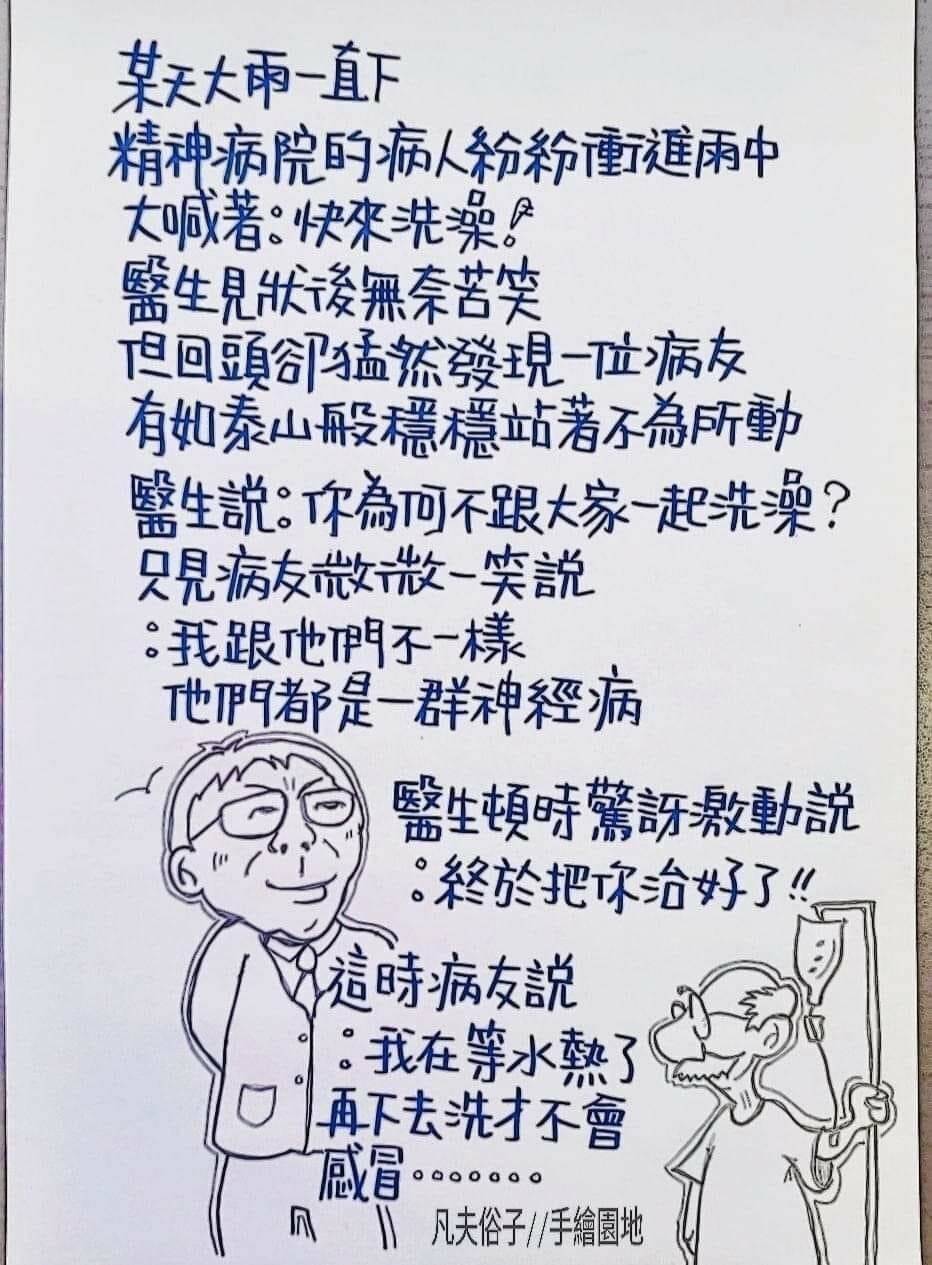 某天大雨一直下
精神病院的病人紛紛衝進雨中
大喊著:快來洗澡!
醫生見狀後無奈苦笑
但回頭卻猛然發現一位病友
有如泰山般穩穩站著不為所動
醫生說:你為何不跟大家一起洗澡?
只見病友微微一笑說
:我跟他們不一樣
他們都是一群神經病
醫生頓時驚訝激動說
:終於把你治好了!!
這時病友說
:我在等水熱了
再下去洗才不會
感冒.......
凡夫俗子//手繪園地